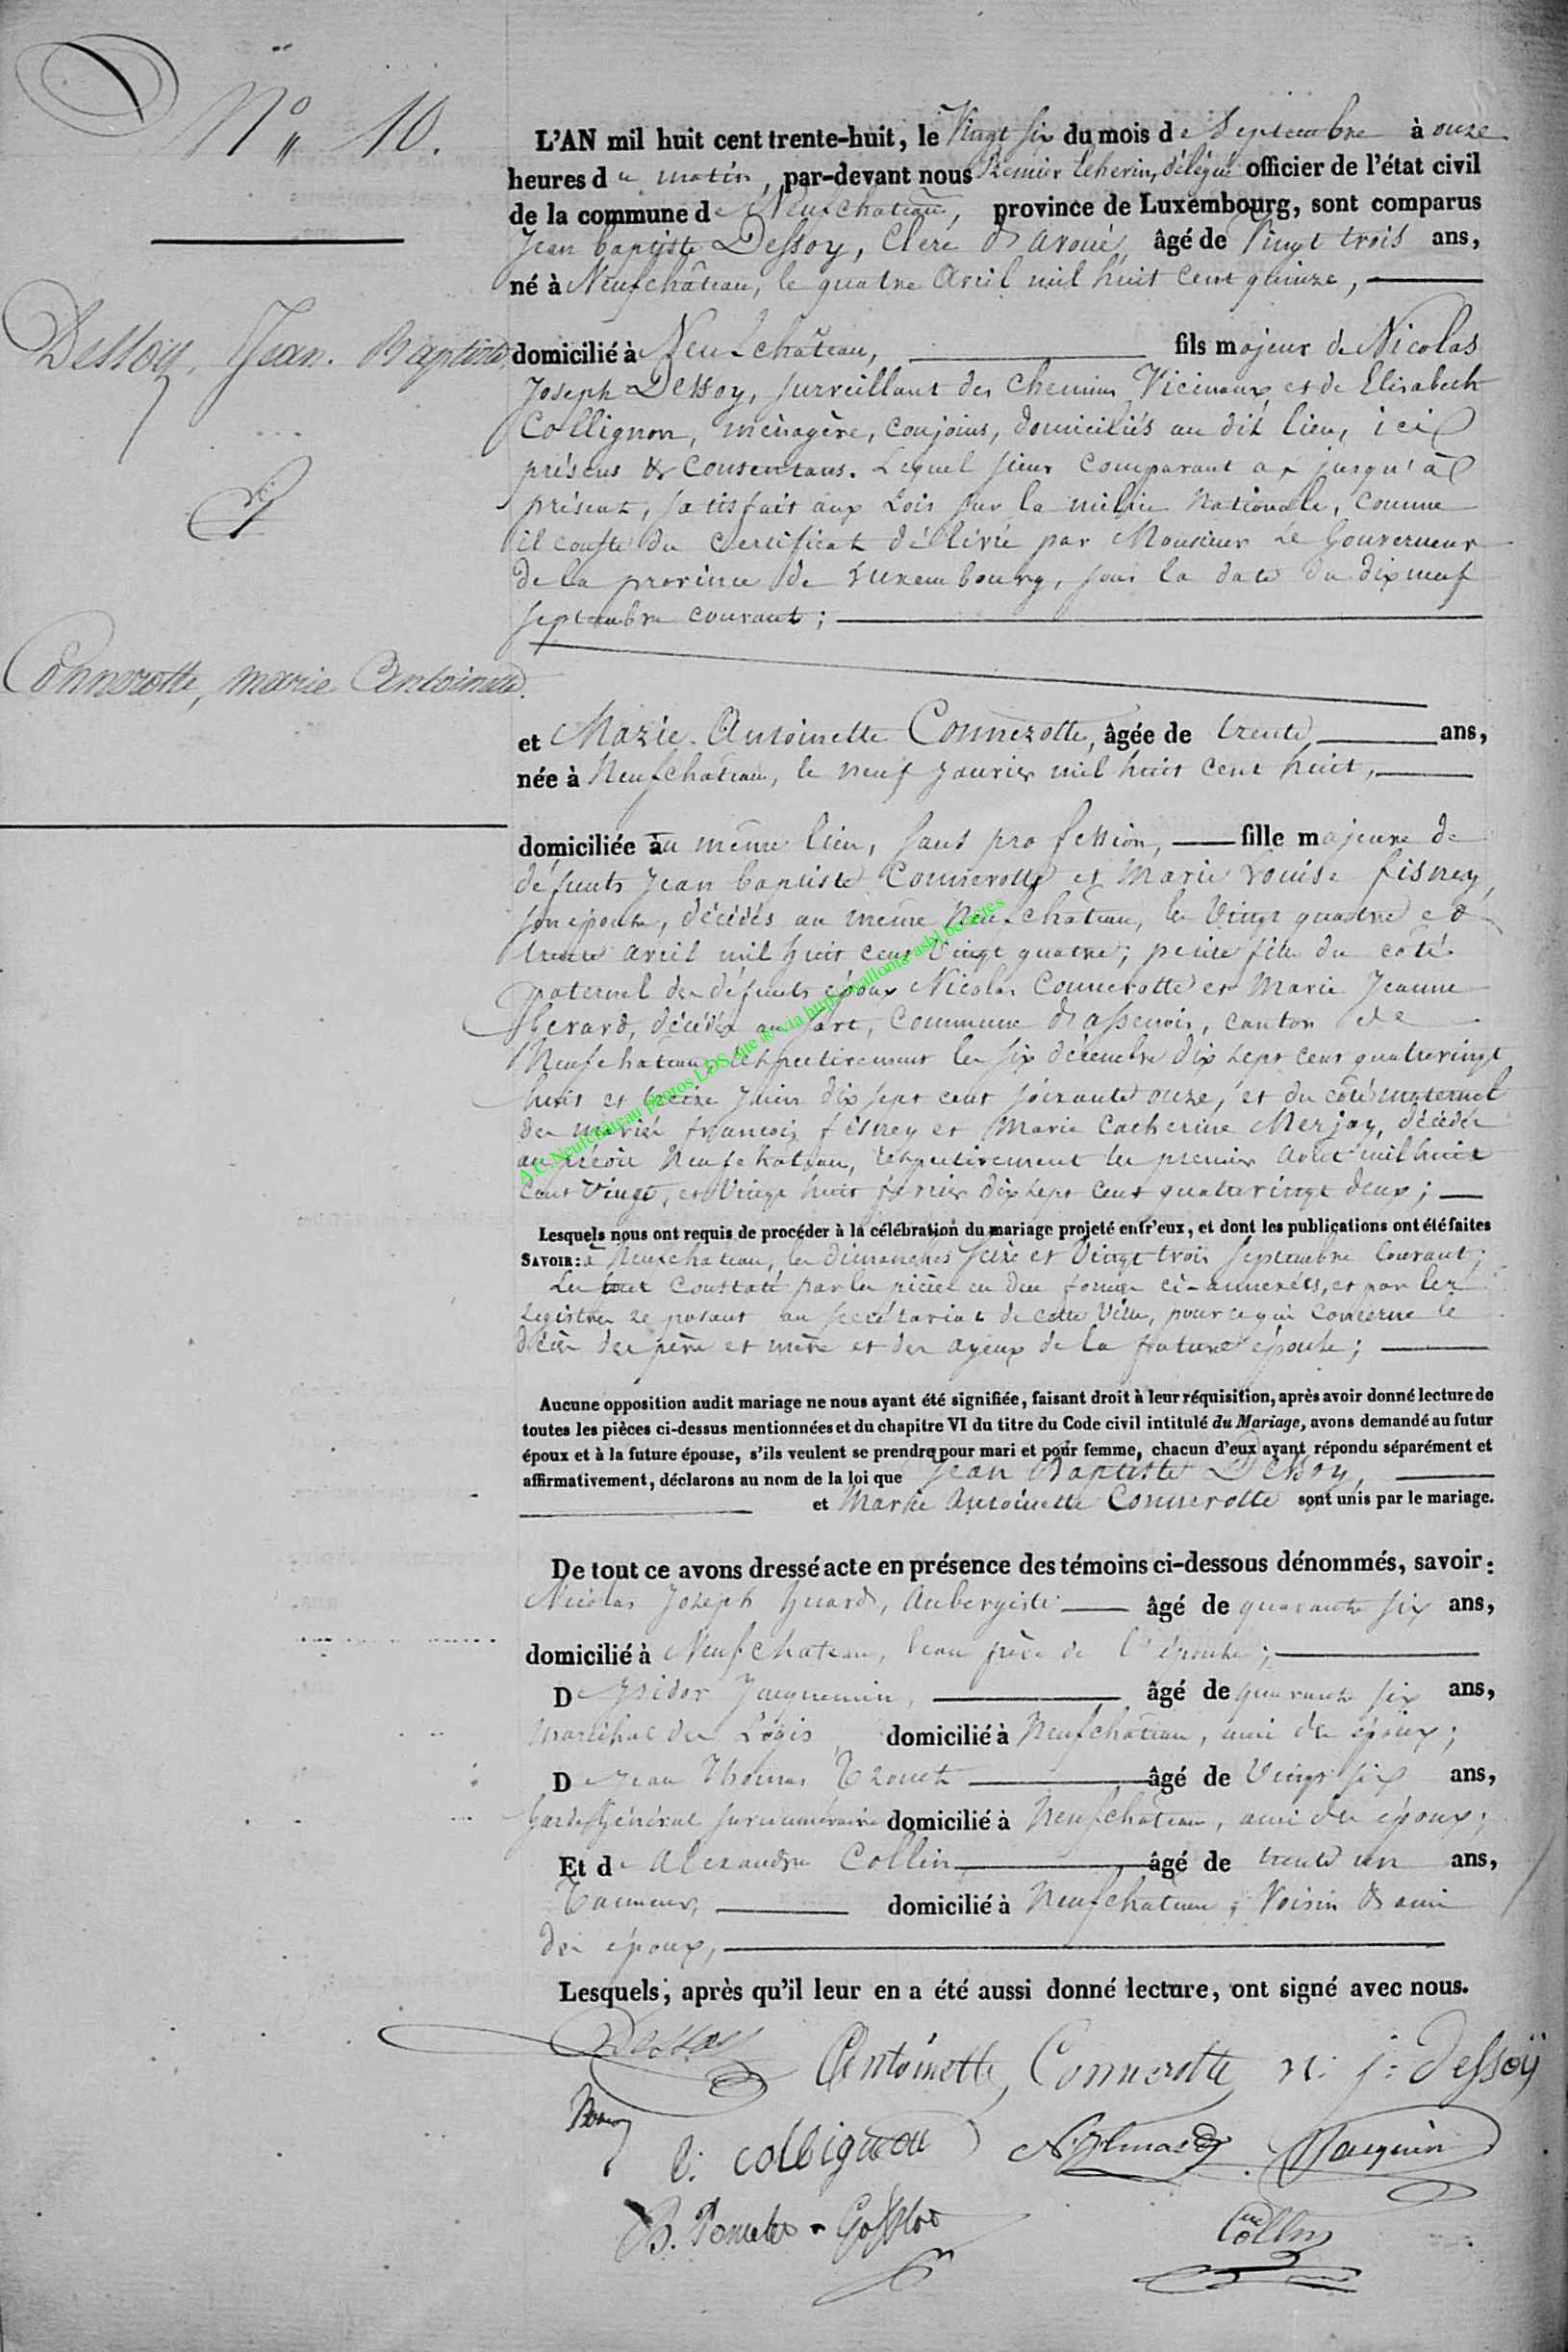 N° 10.
L'AN mil huit cent trente-huit, le Vingt Six du mois de Septembre à onze
heures du matin, par-devant nous Premier Echevin, délégué officier de l'état civil
de la commune de Neufchateau, province de Luxembourg, sont comparus
Jean baptiste Dessoy, Clerc d'avoué, âgé de Vingt trois ans,
né à Neufchâteau, le quatre Avril mil huit cent quinze,
Dessoy, Jean. Baptiste.
domicilié à Neufchâteau, fils majeur de Nicolas
Joseph Dessoy, surveillant des chemins Vicinaux, et de Elisabeth
Collignon, ménagère, conjoins, domiciliés au dit lieu, ici
présens & consentans. Lequel sieur comparant a, jusqu'à
présent, satisfait aux Lois sur la milice Nationale, comme
il conste du Certificat délivré par Monsieur Le Gouverneur
de la province de Luxembourg, sous la date du dix neuf
septembre courant;
&
Connerotte, marie Antoinette.
et Marie Antoinette Connerotte, âgée de trente ans,
née à Neufchateau, le neuf Janvier mil huit cent huit,
domiciliée au même lieu, sans profession, fille majeure de
défunts Jean baptiste Connerotte et Marie Louise fisney,
son épouse, décédés au même Neufchâteau, les Vingt quatre et
trente avril mil huit cent Vingt quatre; petite fille du côté
paternel des défunts époux Nicolas Connerotte et Marie Jeanne
Gerard, décédés au Sart, Commune d'assenois, canton de
Neufchateau respectivement les six décembre dix sept cent quatrevingt
huit et treize Juin dix sept cent soixante onze, et du côté maternel
des mariés françois fisney et Marie Catherine Merjay, décédés
au Neufchateau, respectivement les premier Août mil huit
cent Vingt, et Vingt huit fevrier dix sept cent quatrevingt deux;
Lesquels nous ont requis de procéder à la célébration du mariage projeté entr'eux, et dont les publications ont été faites
SAVOIR: à Neufchateau, les dimanches seize et Vingt trois Septembre Courant;
Le tout constaté par les pièces en due forme ci-annexées, et par les
Registres reposant au secrétariat de cette Ville, pour ce qui concerne le
décès des père et mère et des ayeux de la future épouse;
Aucune opposition audit mariage ne nous ayant été signifiée, faisant droit à leur réquisition, après avoir donné lecture de
toutes les pièces ci-dessus mentionnées et du chapitre VI du titre du Code civil intitulé du Mariage, avons demandé au futur
époux et à la future épouse, s'ils veulent se prendre pour mari et pour femme, chacun d'eux ayant répondu séparément et
affirmativement, déclarons au nom de la loi que Jean Baptiste Dessoy,
et Marie Antoinette Connerotte sont unis par le mariage.
De tout ce avons dressé acte en présence des témoins ci-dessous dénommés, savoir:
Nicolas Joseph huard, Aubergiste âgé de quarante six ans,
domicilié à Neufchateau, beau frère de l'épouse;
D Isidor Jacquemin, âgé de quarante six ans,
Maréchal des Logis, domicilié à Neufchâteau, ami des époux;
De Jean Thomas âgé de Vingt six ans,
Garde Général surnuméraire domicilié à Neufchâteau, ami des époux;
Et de Alexandre Collin âgé de trente un ans,
Tanneur, domicilié à Neufchateau, Voisin & ami
des époux,
Lesquels, après qu'il leur en a été aussi donné lecture, ont signé avec nous.
Dessoy
Antoinette Connerotte n: j: dessoÿ
collignon
Collin
A.C. Neufchâteau photos LDS site & via http://wallonia-asbl.be/actes